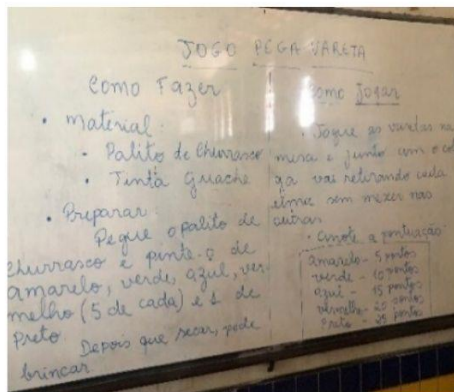 JOGO PEGA VARETA
Como Fazer
• Material
• Palito de Churrasco
• Tinta Guache
• Preparar
Pegue o palito de
churrasco e pinte-o de
amarelo, verde, azul, ver-
melho (5 de cada) e 1 de
Preto.
Depois que secar, pode
brincar
Como Jogar
• Jogue as varetas na
mesa e junto com o cole
ga vai retirando cada
sem mexer nas
outras
• Anote a pontuação
amarelo - 5 pontos
verde - 10 pontos
azul - 15 pontos
vermelho - 20 pontos
Preto - 25 pontos